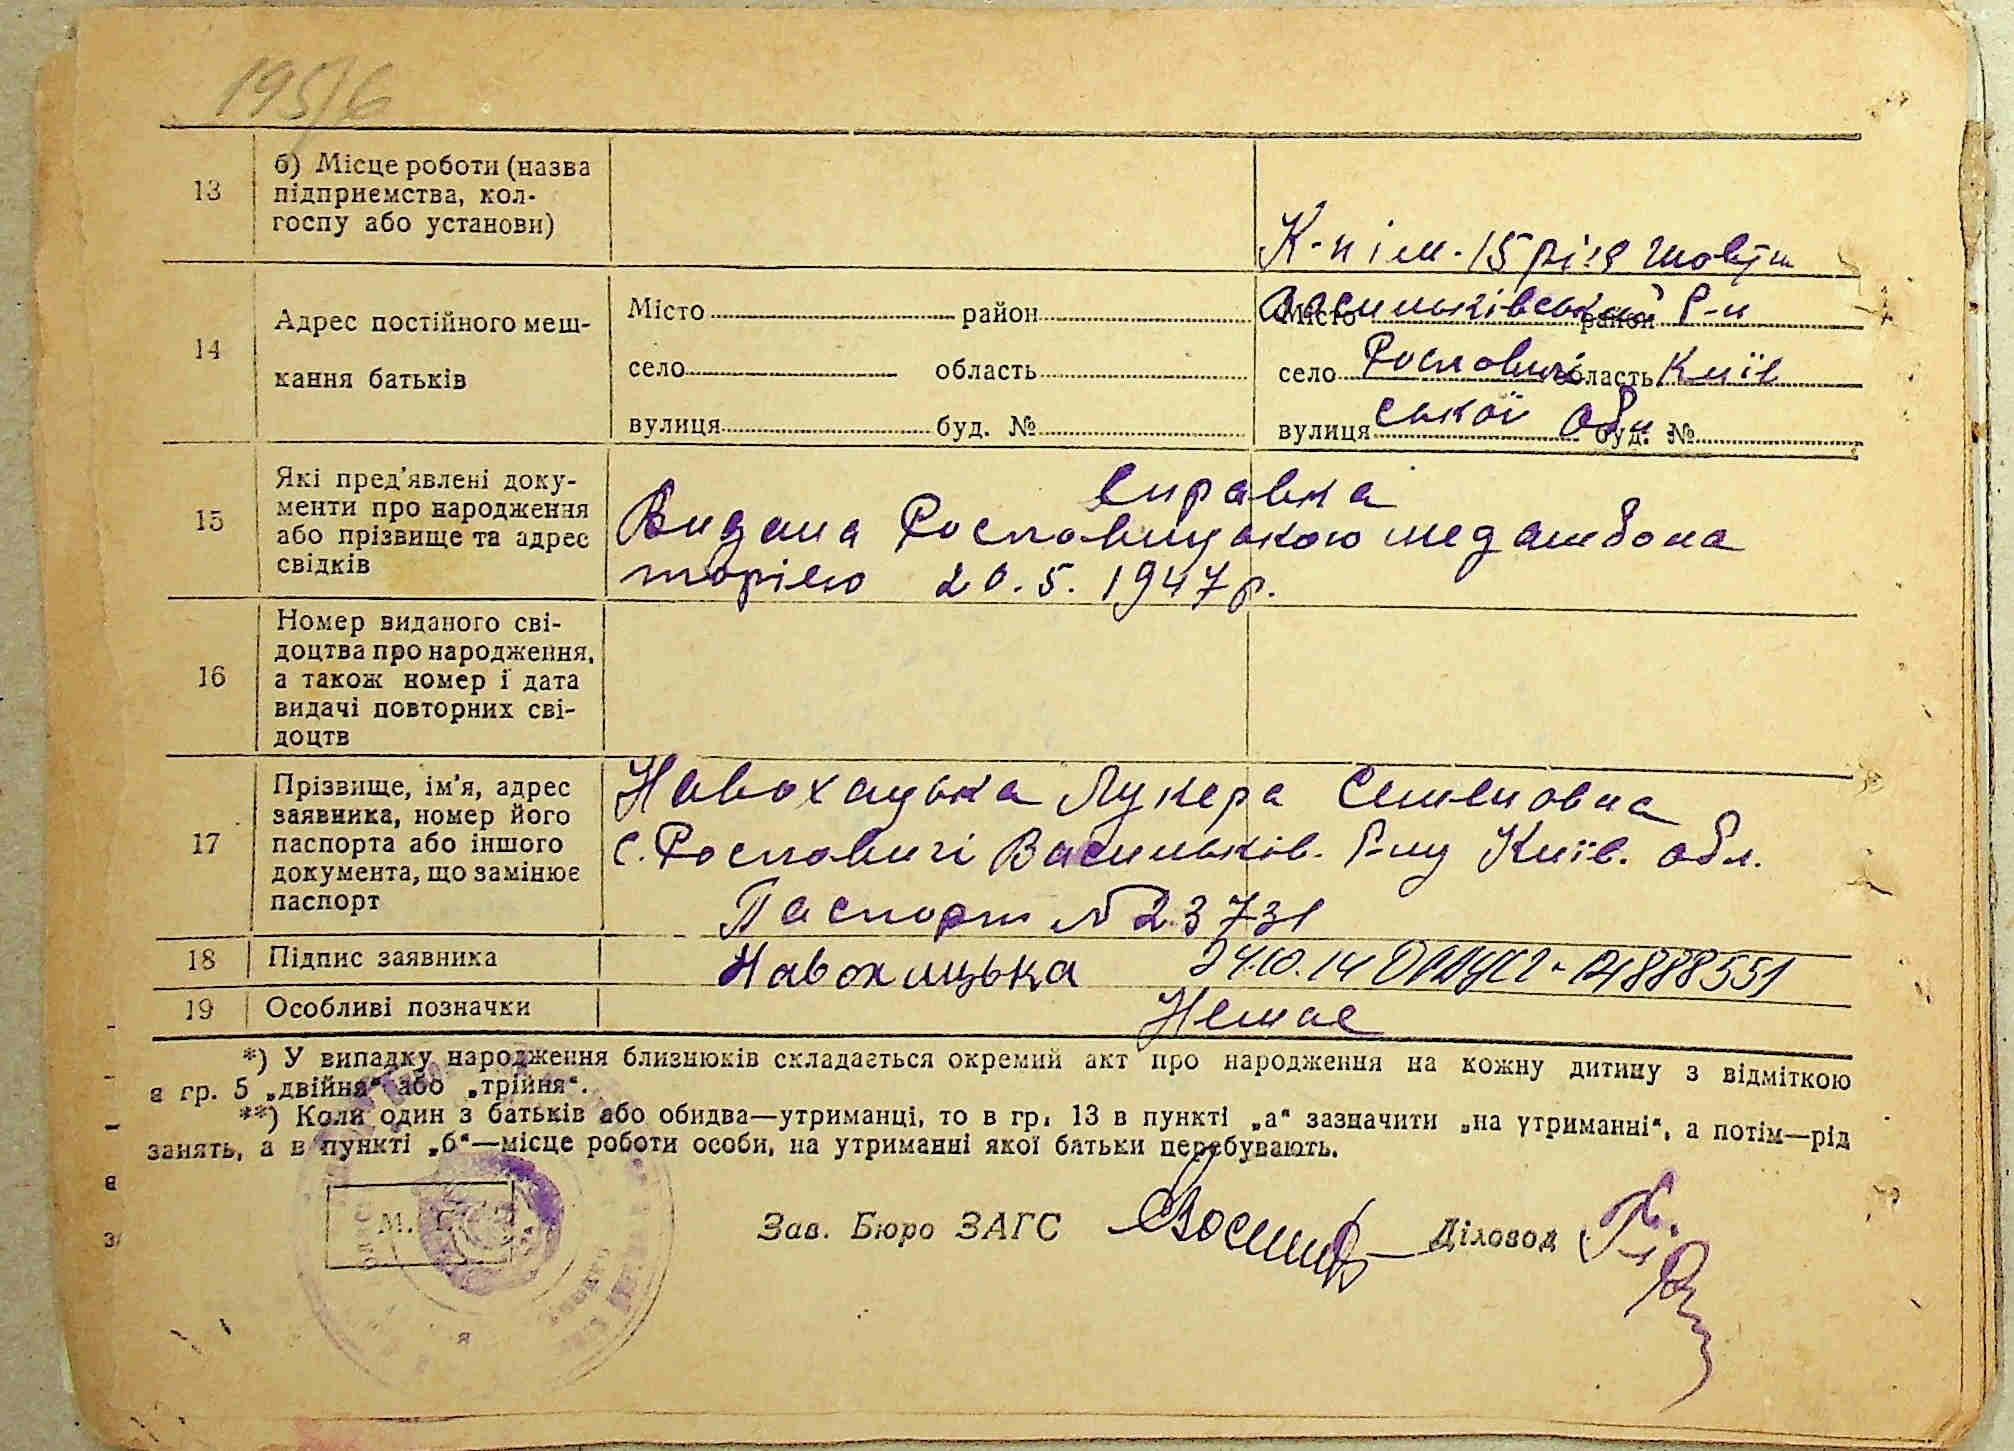 195/6
13
б) Місце роботи (назва
підприємства, кол-
госпу або установи)
К-п ім. 15 річя Жовтн
14
Адрес постійного меш-
кання батьків
Місто район
село область
вулиця буд. №
Місто район
Васильківський Р-н
село Рославичі область Київ
вулиця ської обл буд. №
15
Які пред'явлені доку-
менти про народження
або прізвище та адрес
свідків
Справка
Видана Рославицькою медамбола
торією 20.5.1947р.
16
Номер виданого сві-
доцтва про народження,
а також номер і дата
видачі повторних сві-
доцтв
17
Прізвище, ім'я, адрес
заявника, номер його
паспорта або іншого
документа, що замінює
паспорт
Навохацька Лукера Семеновна
с. Рославичі Васильків. Р-ну Київ. обл.
Паспорт № 23731
18
Підпис заявника
Навохицька 24.10.14
19
Особливі позначки
Немає
*) У випадку народження близнюків складається окремий акт про народження на кожну дитину з відміткою
в гр. 5 „двійня“ або „трійня“.
**) Коли один з батьків або обидва—утриманці, то в гр. 13 в пункті „а“ зазначити „на утриманні“, а потім—рід
занять, а в пункті „б“—місце роботи особи, на утриманні якої батьки перебувають.
М.
Зав. Бюро ЗАГС
Діловод